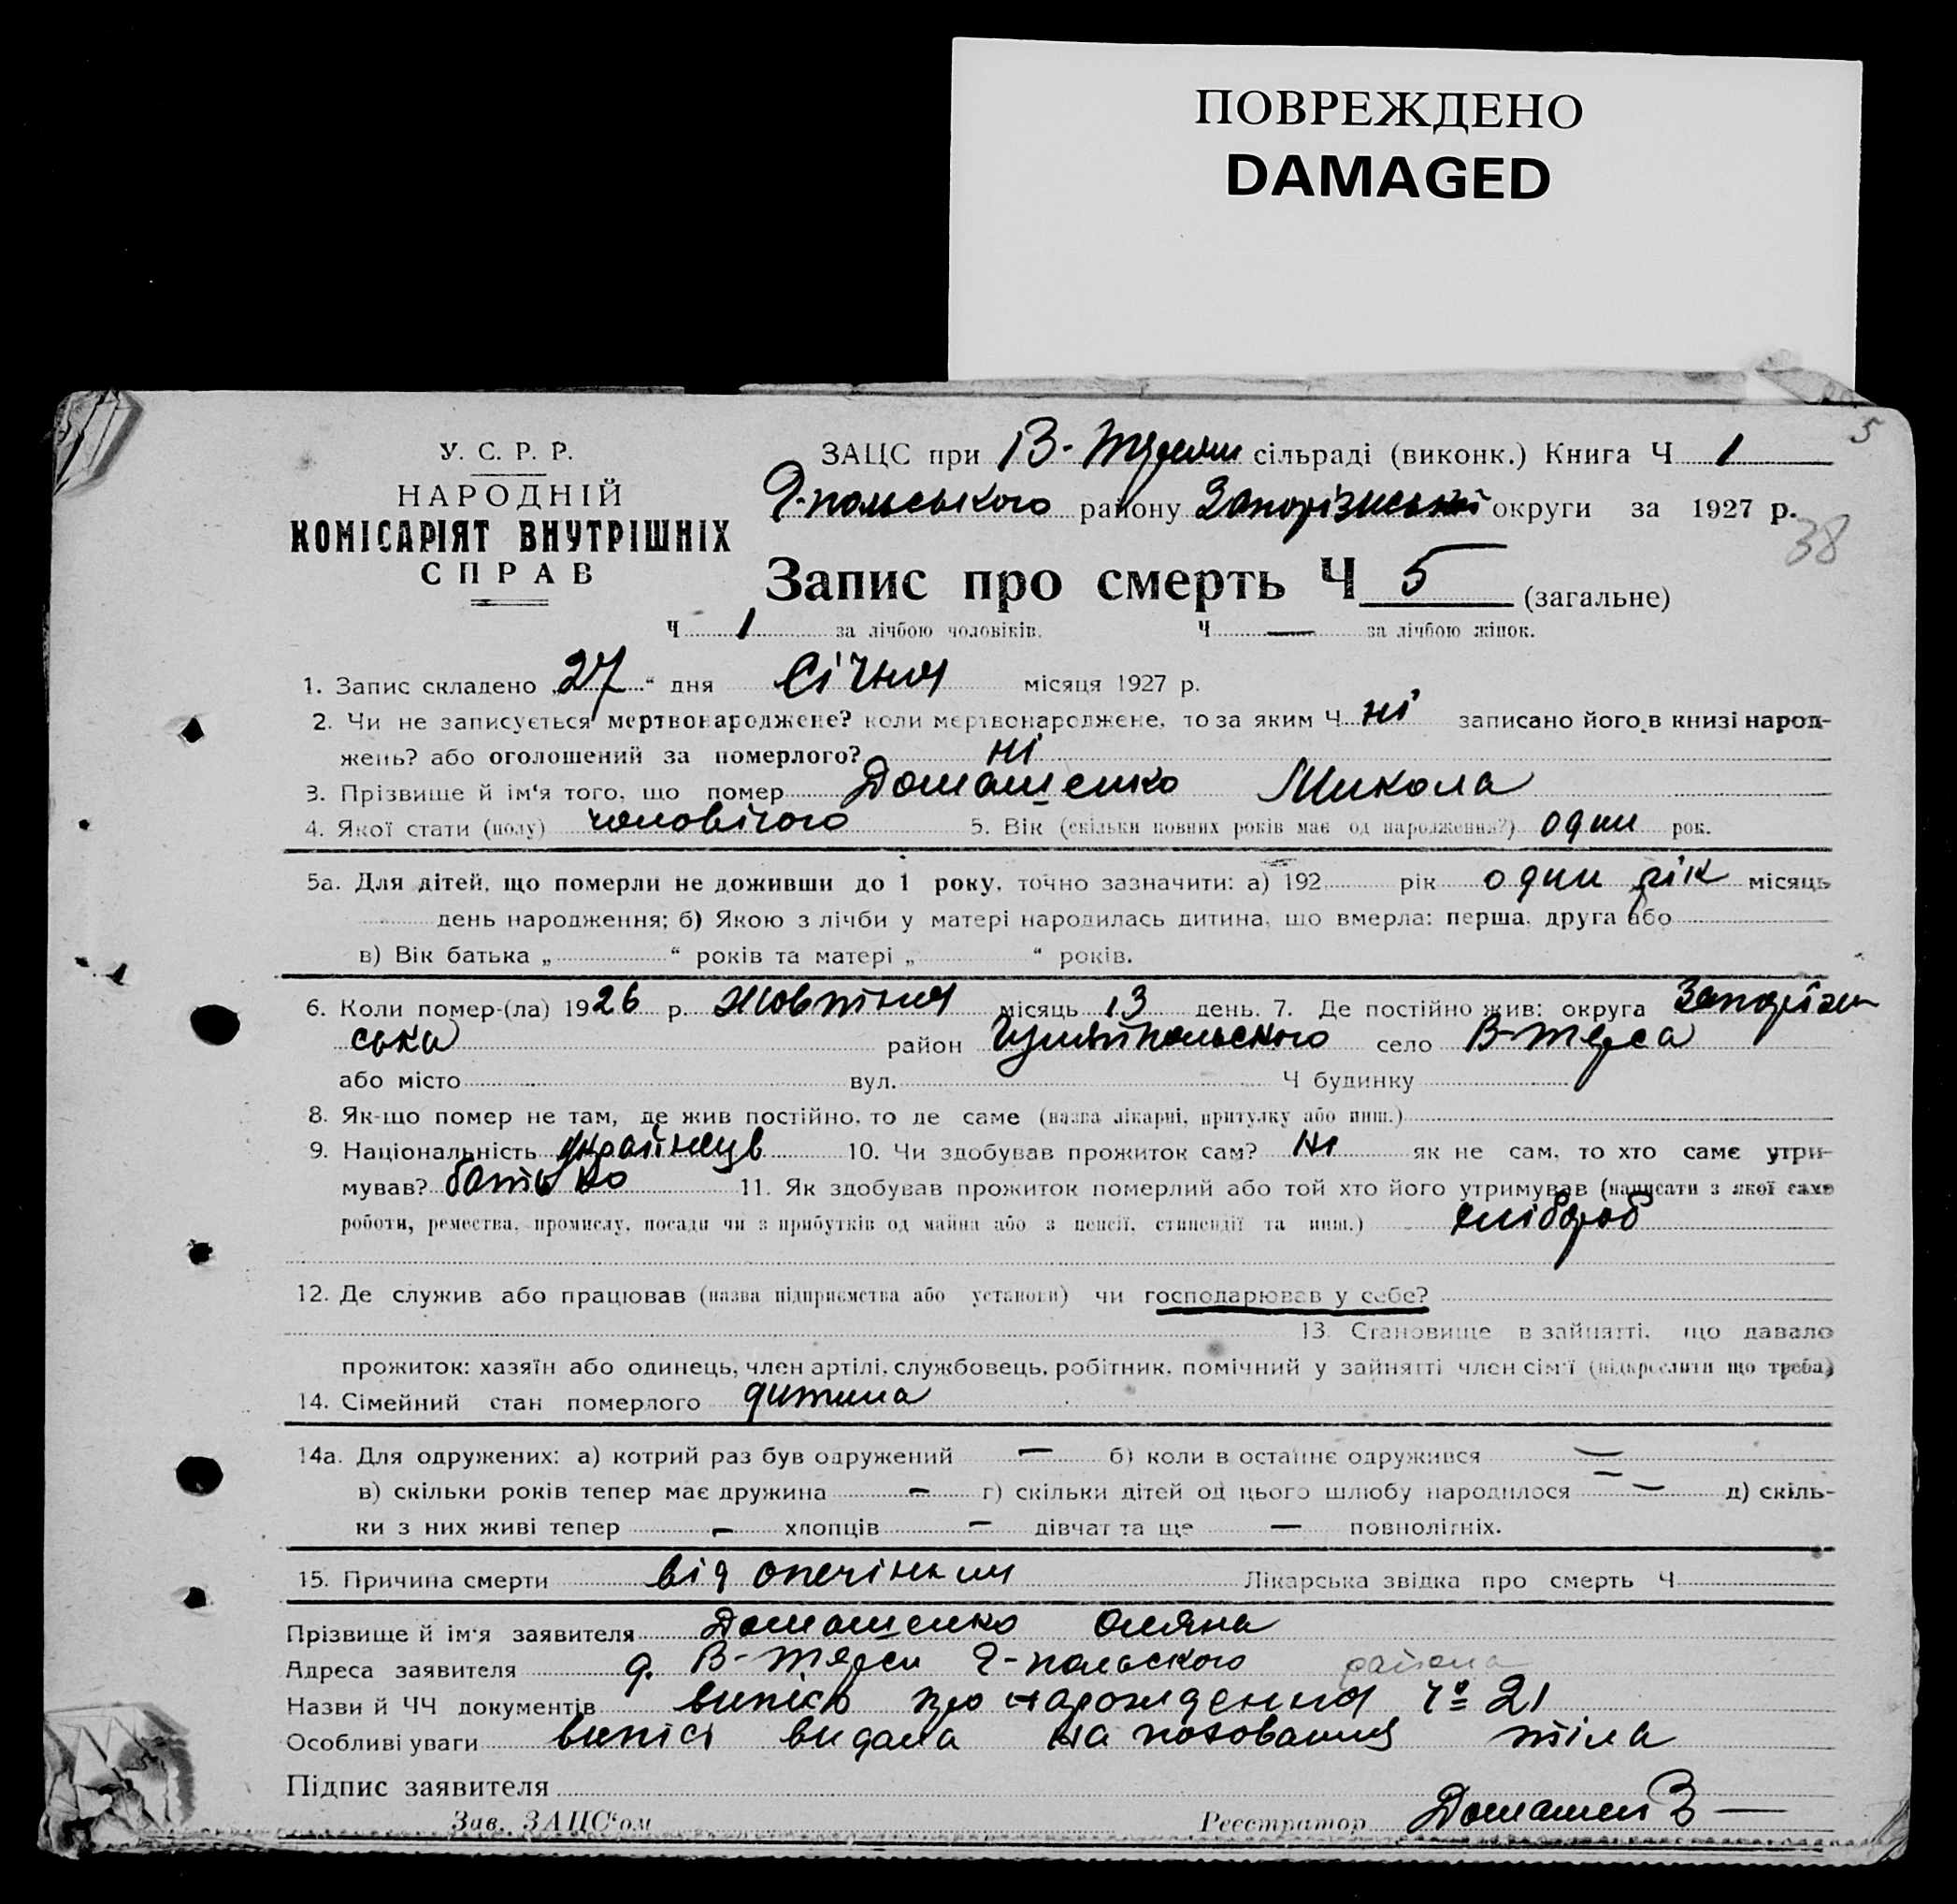 ПОВРЕЖДЕНО
DAMAGED
5
У. С. Р. Р.
НАРОДНІЙ
КОМІСАРІЯТ ВНУТРІШНІХ
СПРАВ
ЗАЦС при В-Терсян сільраді (виконк.) Книга Ч 1
Г-польського району Запорізської округи за 1927 р.
38
Запис про смерть Ч 5 (загальне)
Ч 1 за лічбою чоловіків. Ч — за лічбою жінок.
1. Запис складено „27“ дня Січня місяця 1927 р.
2. Чи не записується мертвонароджене? коли мертвонароджене, то за яким Ч ні записано його в книзі народ-
жень? або оголошений за померлого? ні
3. Прізвище й ім‘я того, що помер Домашенко Микола
4. Якої стати (полу) чоловічого 5. Вік (скільки повних років має од народження?) один рок.
5а. Для дітей, що померли не доживши до 1 року, точно зазначити: а) 192 рік один рік місяць
день народження; б) Якою з лічби у матері народилась дитина, що вмерла: перша, друга або
в) Вік батька „ “ років та матері „ “ років.
6. Коли помер-(ла) 1926 р. Жовтня місяць 13 день. 7. Де постійно жив: округа Запоріз
ська район Гуляйпольского село В-Терса
або місто вул. Ч будинку
8. Як-що помер не там, де жив постійно, то де саме (назва лікарні, притулку або инш.)
9. Національність українців 10. Чи здобував прожиток сам? Ні як не сам, то хто саме утри-
мував? батько 11. Як здобував прожиток померлий або той хто його утримував (написати з якої саме
роботи, ремества, промислу, посади чи з прибутків од майна або з пенсії, стипендії та инш.) хлібороб
12. Де служив або працював (назва підприємства або установи) чи господарював у себе?
13. Становище в зайнятті, що давало
прожиток: хазяїн або одинець, член артілі, службовець, робітник, помічний у зайнятті член сім‘ї (підкреслити що треба)
14. Сімейний стан померлого дитина
14а. Для одружених: а) котрий раз був одружений — б) коли в останнє одружився —
в) скільки років тепер має дружина — г) скільки дітей од цього шлюбу народилося — д) скіль-
ки з них живі тепер — хлопців — дівчат та ще — повнолітніх.
15. Причина смерти від опечінния Лікарська звідка про смерть Ч
Прізвище й ім‘я заявителя Домашенко Омяна
Адреса заявителя д. В-Терси Г-польского района
Назви й ЧЧ документів випісь про нарождення Чº 21
Особливі уваги випісь видана на похования тіла
Підпис заявителя
Зав. ЗАЦС‘ом Реєстратор Домашен